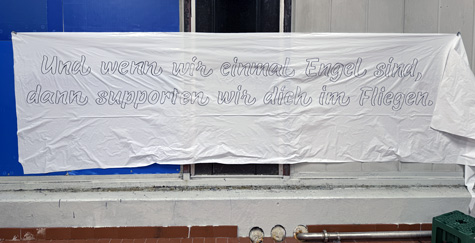 Und wenn wir einmal Engel sind,
dann supporten wir dich im Fliegen.